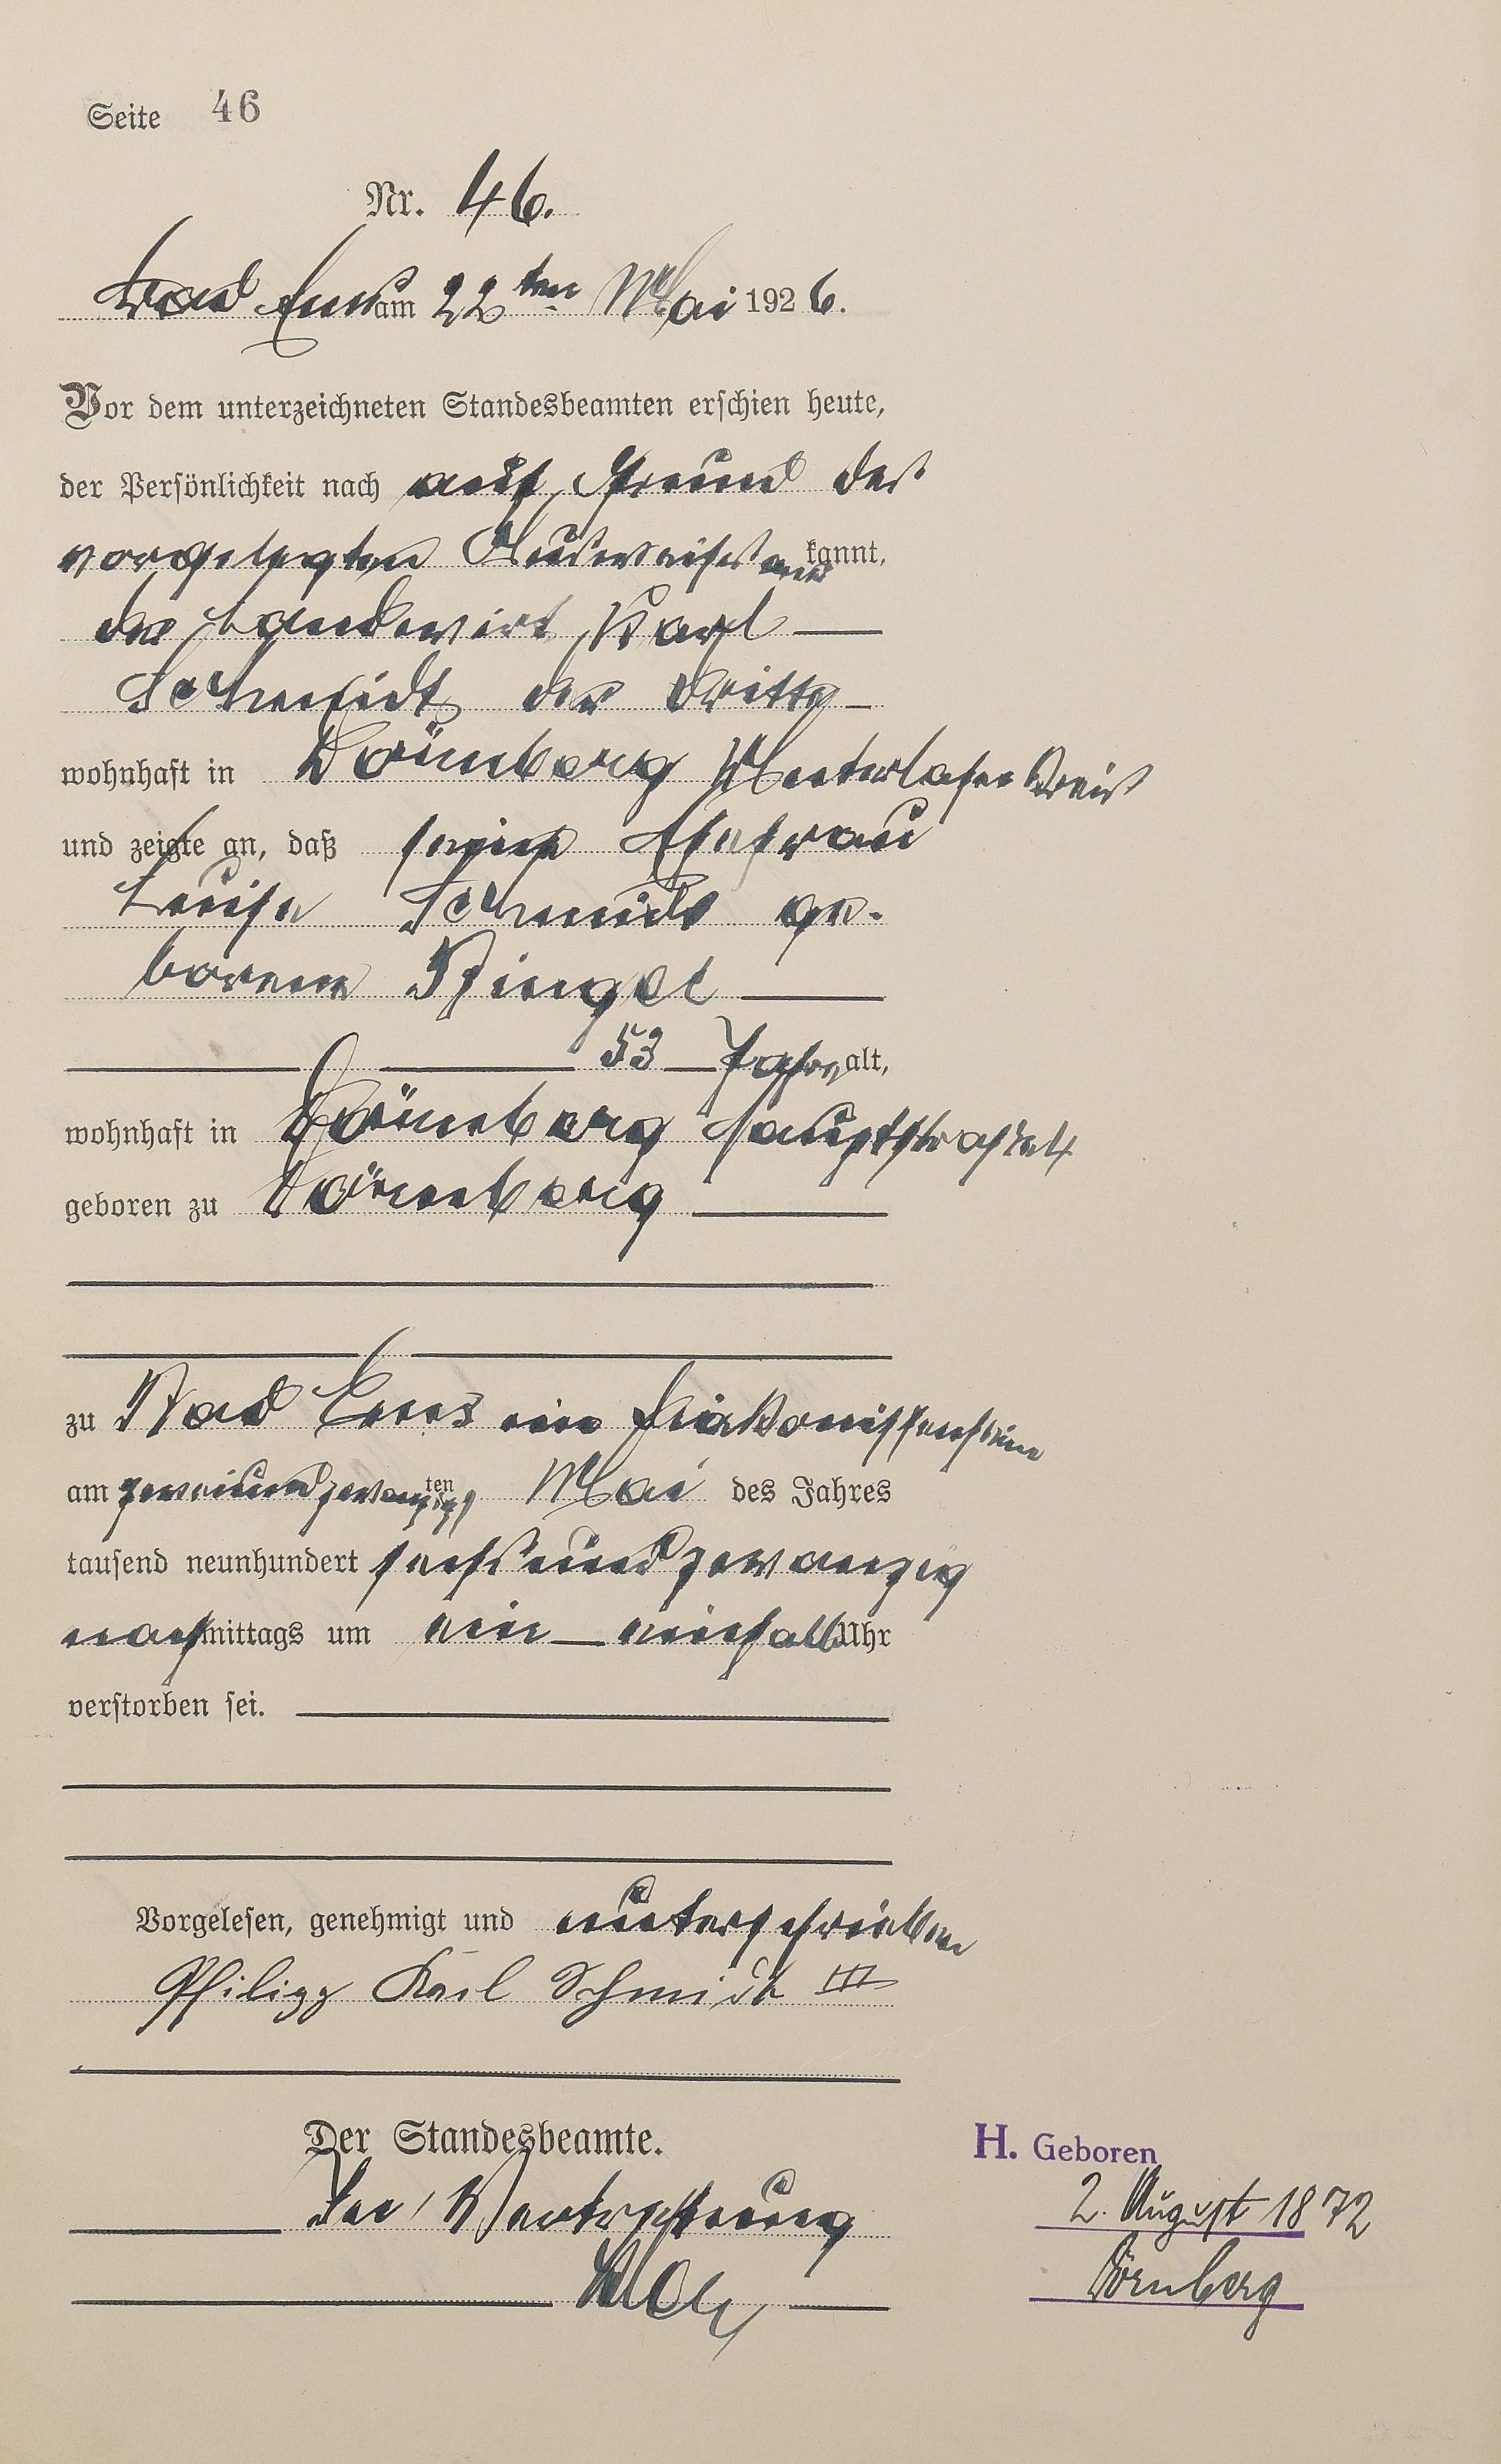 Seite 46
Nr. 46.
Bad Ems am 22ten Mai 1926.
Vor dem unterzeichneten Standesbeamten erschien heute,
der Persönlichkeit nach auf Grund des
vorgelegten Ausweises anerkannt,
der Landwirt Karl
Schmidt der dritte
wohnhaft in Dörnberg Unterlahnkreis
und zeigte an, daß seine Ehefrau
Luise Schmidt ge-
borene
53 Jahre alt,
wohnhaft in Dörnberg Hauptstraße
geboren zu Dörnberg
zu Bad Ems im Diakonissenheim
am zweiundzwanzigsten Mai des Jahres
tausend neunhundert sechsundzwanzig
nachmittags um ein einhalb Uhr
verstorben sei.
Vorgelesen, genehmigt und unterschrieben
Philipp Karl Schmidt III
Der Standesbeamte.
In Vertretung
H. Geboren
2. August 1872
Dörnberg